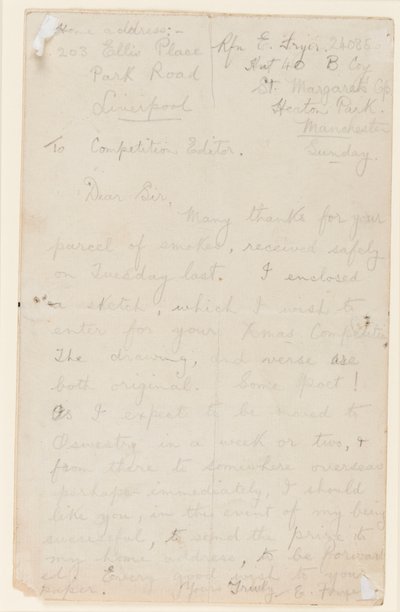 Home address:-
203 Ellis Place
Park Road
Liverpool
Rfn E. Fryer. 24085
Hut 40 B Coy
St. Margarets Cp
Heaton Park.
Manchester
Sunday.
To Competition Editor.
Dear Sir,
Many thanks for your
parcel of smokes, received safely
on Tuesday last. I enclosed
a sketch, which I wish to
enter for your Xmas Competition
The drawing, and verse are
both original. Some Poet!
As I expect to be moved to
Oswestry in a week or two, &
from there to somewhere overseas
perhaps immediately, I should
like you, in the event of my being
successful, to send the prize to
my home address, to be forward
ed. Every good wish to your
paper. Yours Truly E. Fryer